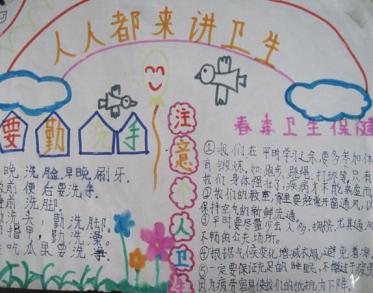 人人都来讲卫生
要勤洗手
晚洗脸,早晚刷牙.
前便后要洗手.
前洗脚.
洗头,勤洗脚.
指甲,勤洗澡.
吃瓜果要洗
注意个人卫生
春季卫生保健
①我们在平时学习之余,要多参加体
育锻炼,如:跑步,跳绳,打球等,只有
我们身体强壮了,疾病才不能
②我们的教室,家里要经常开窗通风,
保持空气的新鲜流通.
③平时要尽量少去人多,拥挤,尤其通风
不畅的公共场所.
④根据气候变化增减衣服,避免着凉.
⑤一定要保证充足的睡眠,不能过于疲劳
因为疲劳容易使我们的抵抗力下降.